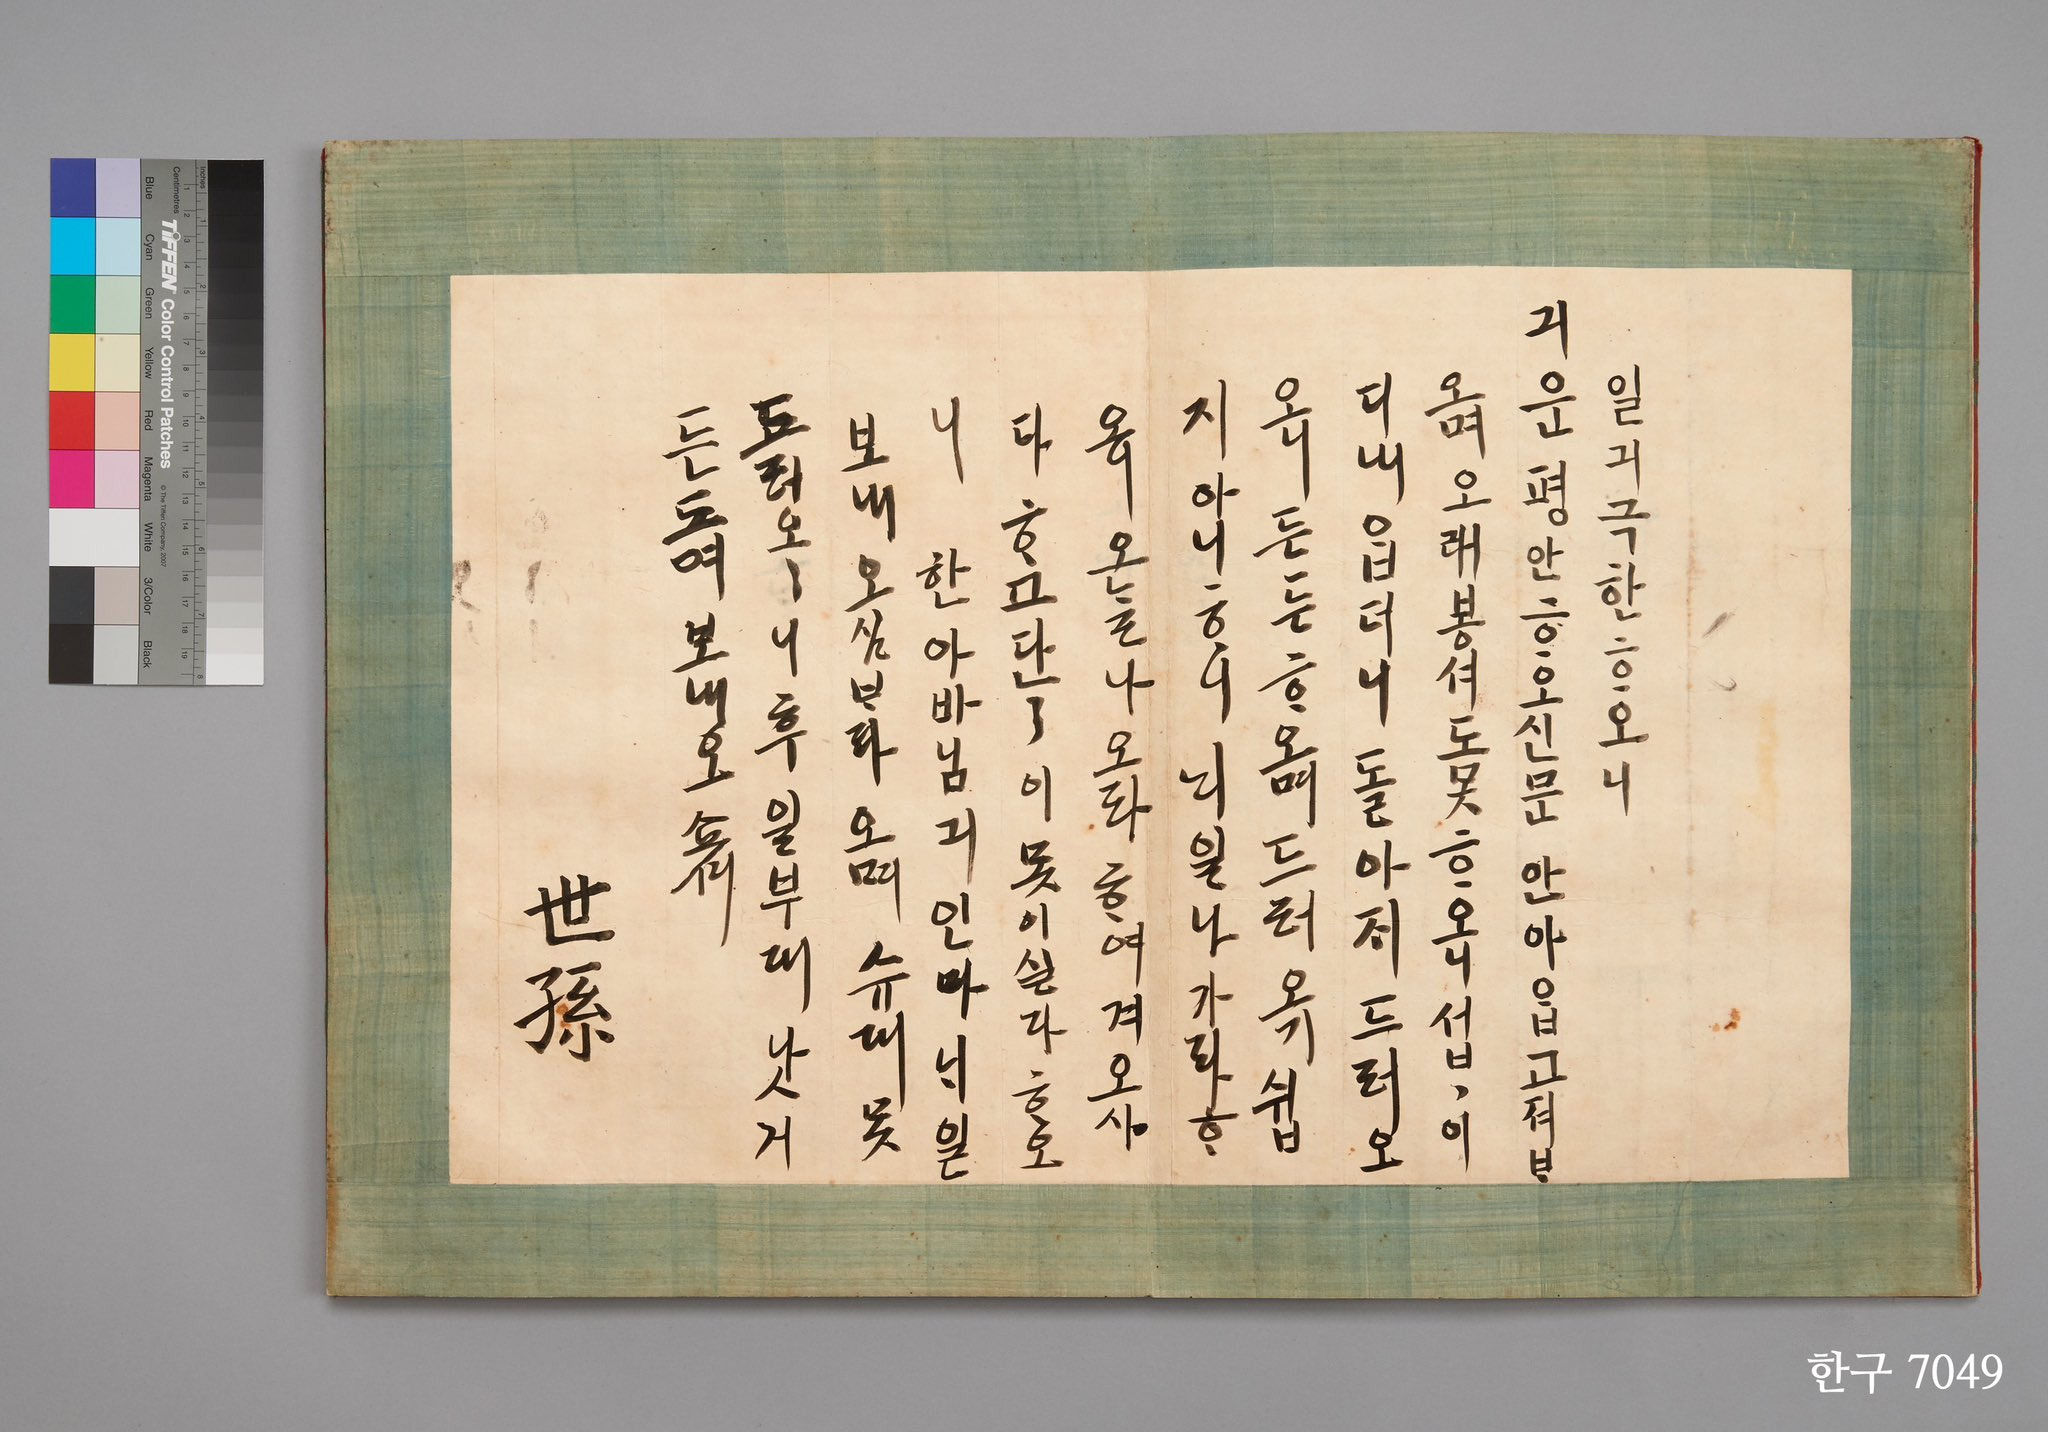 일긔극한ᄒᆞ오니
긔운평안ᄒᆞ오신문안아ᄋᆞᆸ고져ᄇᆞ
오며오래봉셔도못ᄒᆞ오니섭〻이
디내ᄋᆞᆸ더니돌아저드러오
오니든든ᄒᆞ오며드러오기쉽
지아니ᄒᆞ니ᄂᆡ일나가라ᄒᆞ
오니오ᄂᆞᆯ나오라ᄒᆞ여겨오사
다ᄒᆞ고단〻이못이실다ᄒᆞ오
니 한아바님긔인마ᄂᆡ일
보내오심ᄇᆞ라오며슈대못
드러오〻니후일부대낫거
든드여보내오쇼셔
世孫
한구 7049
TIFFEN Color Control Patches
© The Tiffen Company, 2007
Inches
Centimetres
Blue
Cyan
Green
Yellow
Red
Magenta
White
3/Color
Black